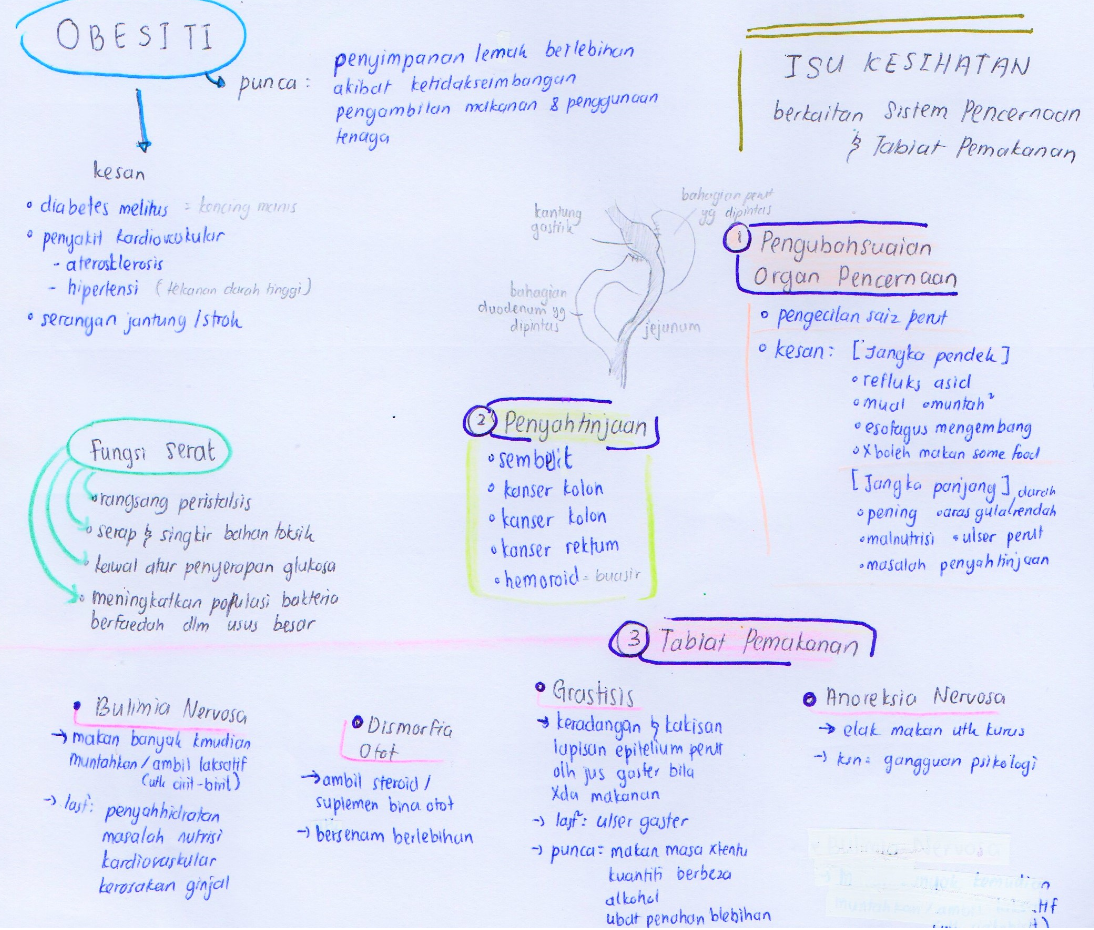 OBESITI
punca:
penyimpanan lemak berlebihan
akibat ketidakseimbangan
pengambilan makanan & penggunaan
tenaga
kesan
• diabetes melitus = kencing manis
• penyakit kardiovaskular
- aterosklerosis
- hipertensi (tekanan darah tinggi)
• serangan jantung / strok
ISU KESIHATAN
berkaitan Sistem Pencernaan
& Tabiat Pemakanan
kantung
gastrik
bahagian perut
yg dipintas
bahagian
duodenum yg
dipintas
jejunum
1 Pengubahsuaian
Organ Pencernaan
• pengecilan saiz perut
• kesan: [Jangka pendek]
• refluks asid
• mual • muntah²
• esofagus mengembang
• X boleh makan some food
[Jangka panjang]
• pening • aras gula darah rendah
• malnutrisi • ulser perut
• masalah penyahtinjaan
2 Penyahtinjaan
• sembelit
• kanser kolon
• kanser kolon
• kanser rektum
• hemoroid = buasir
Fungsi serat
• rangsang peristalsis
• serap & singkir bahan toksik
• kawal atur penyerapan glukosa
• meningkatkan populasi bakteria
berfaedah dlm usus besar
3 Tabiat Pemakanan
• Bulimia Nervosa
→ makan banyak kmudian
muntahkan / ambil laksatif
(utk cirit-birit)
→ last²: penyahhidratan
masalah nutrisi
kardiovaskular
kerosakan ginjal
• Dismorfia
Otot
→ ambil steroid /
suplemen bina otot
→ bersenam berlebihan
• Grastisis
→ keradangan & kakisan
lapisan epitelium perut
olh jus gaster bila
Xda makanan
→ last²: ulser gaster
→ punca = makan masa xtentu
kuantiti berbeza
alkohol
ubat penahan blebihan
• Anoreksia Nervosa
→ elak makan utk kurus
→ ksn: gangguan psikologi